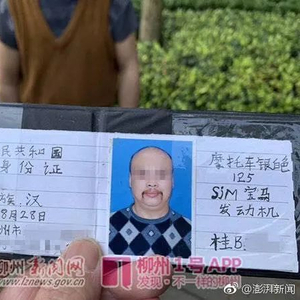 民共和国
身份证
族,汉
8月28日
州市
摩托车银色
125
SJM宝马
发动机
桂B.
柳州1号APP
发现·不一样的柳州
柳州新闻网
www.lznews.gov.cn
@澎湃新闻